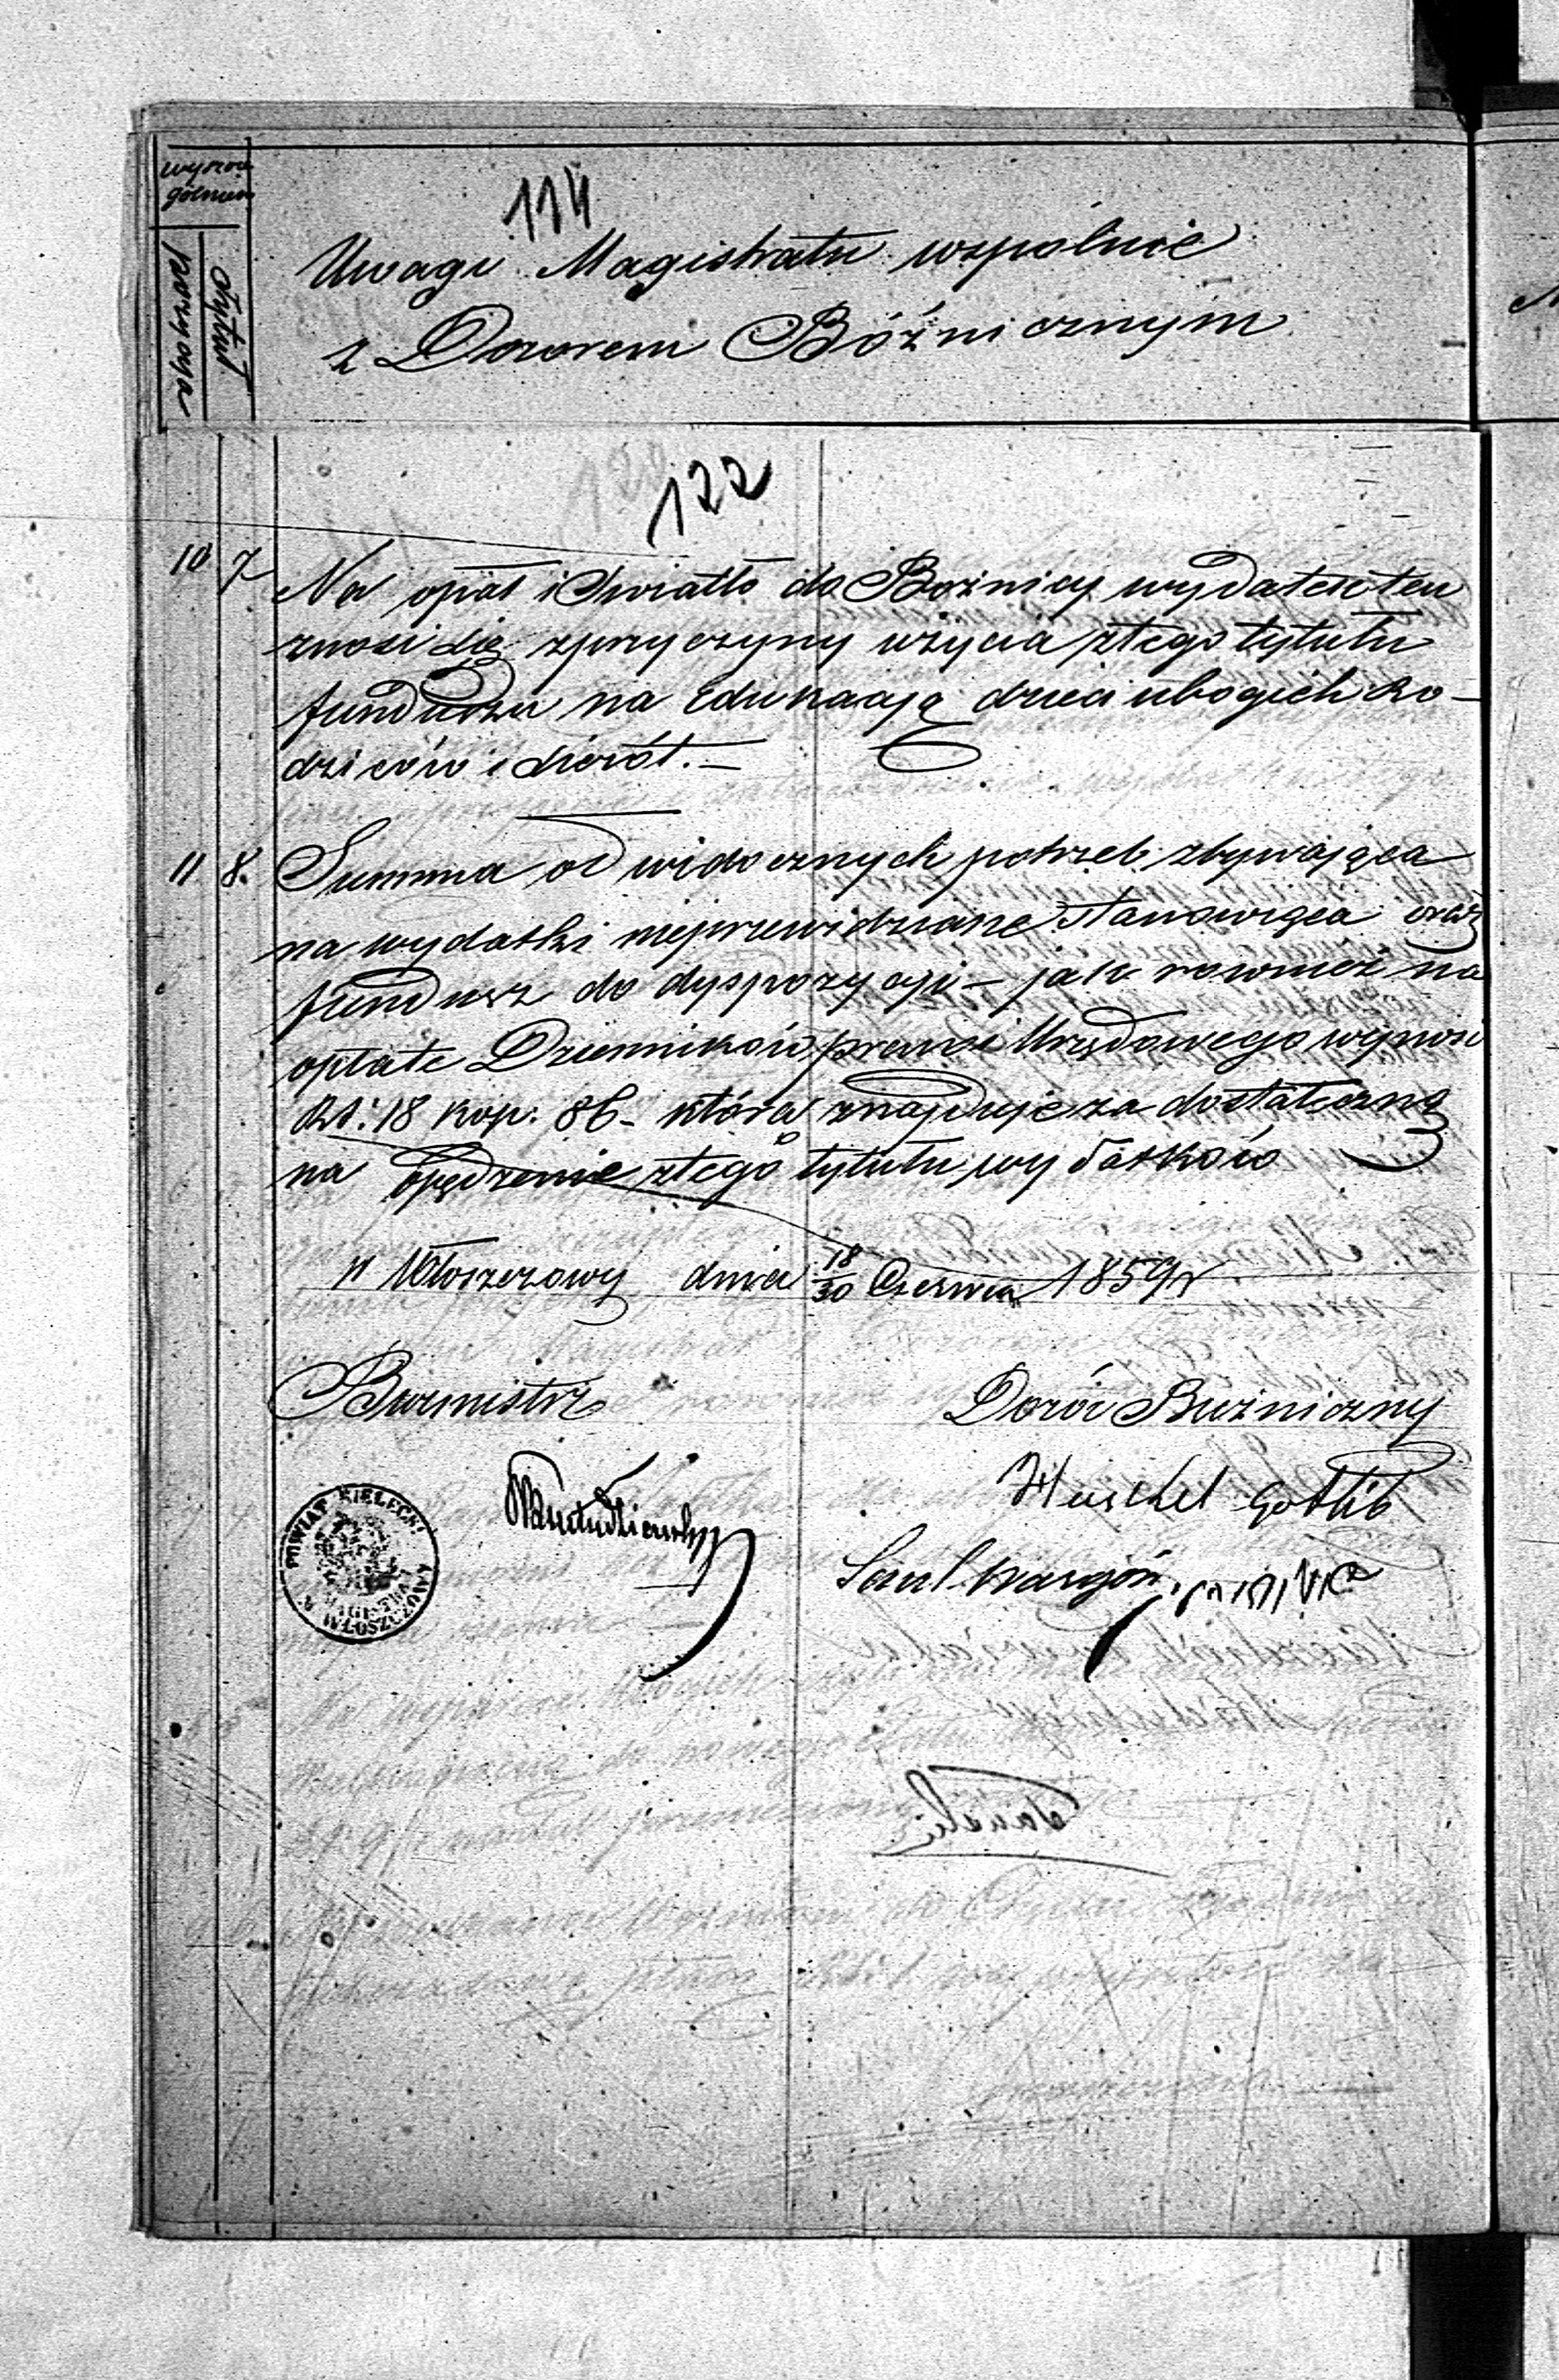 wyszcze
gólnien
pozycya
tytuł
114
Uwagi Magistratu wspólnie
z Dozorem Bóżnicznym
122
10 7 Na opał i Swiatło do Bożnicy wydatek ten
znosi się zprzyczyny użycia ztego tytułu
funduszu na Edukacyą dzieci ubogich Ro-
dziców i sierót.—
11 8. Summa od widocznych potrzeb zbywająca
na wydatki nieprzewidziane stanowiąca oraz
fundusz do dyspozycyi – jak rownież na
opłate Dzienników praw i Urzędowego wynosi
RS: 18 kop: 86 - która znajduje za dostateczną
na opędzenie ztego tytułu wydatków
w Włoszczowy dnia 18/30 Czerwca 1859 r
Burmistrz
Dozór Buźniczny
Herschel Gotlib
Saul Kargón
POWIAT KIELECKI
MAGISTRAT
M. WŁOSZCZOWA